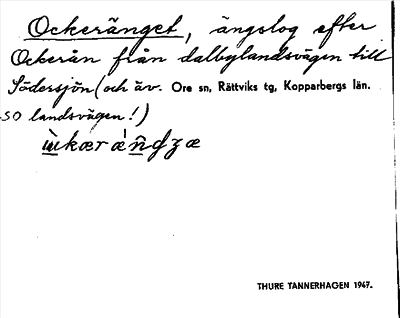 Ockeränget, ängslog efter
Ockerån från dalbylandsvägen till
Södersjön (och äv. Ore sn, Rättviks tg, Kopparbergs län.
so landsvägen!)
THURE TANNERHAGEN 1947.